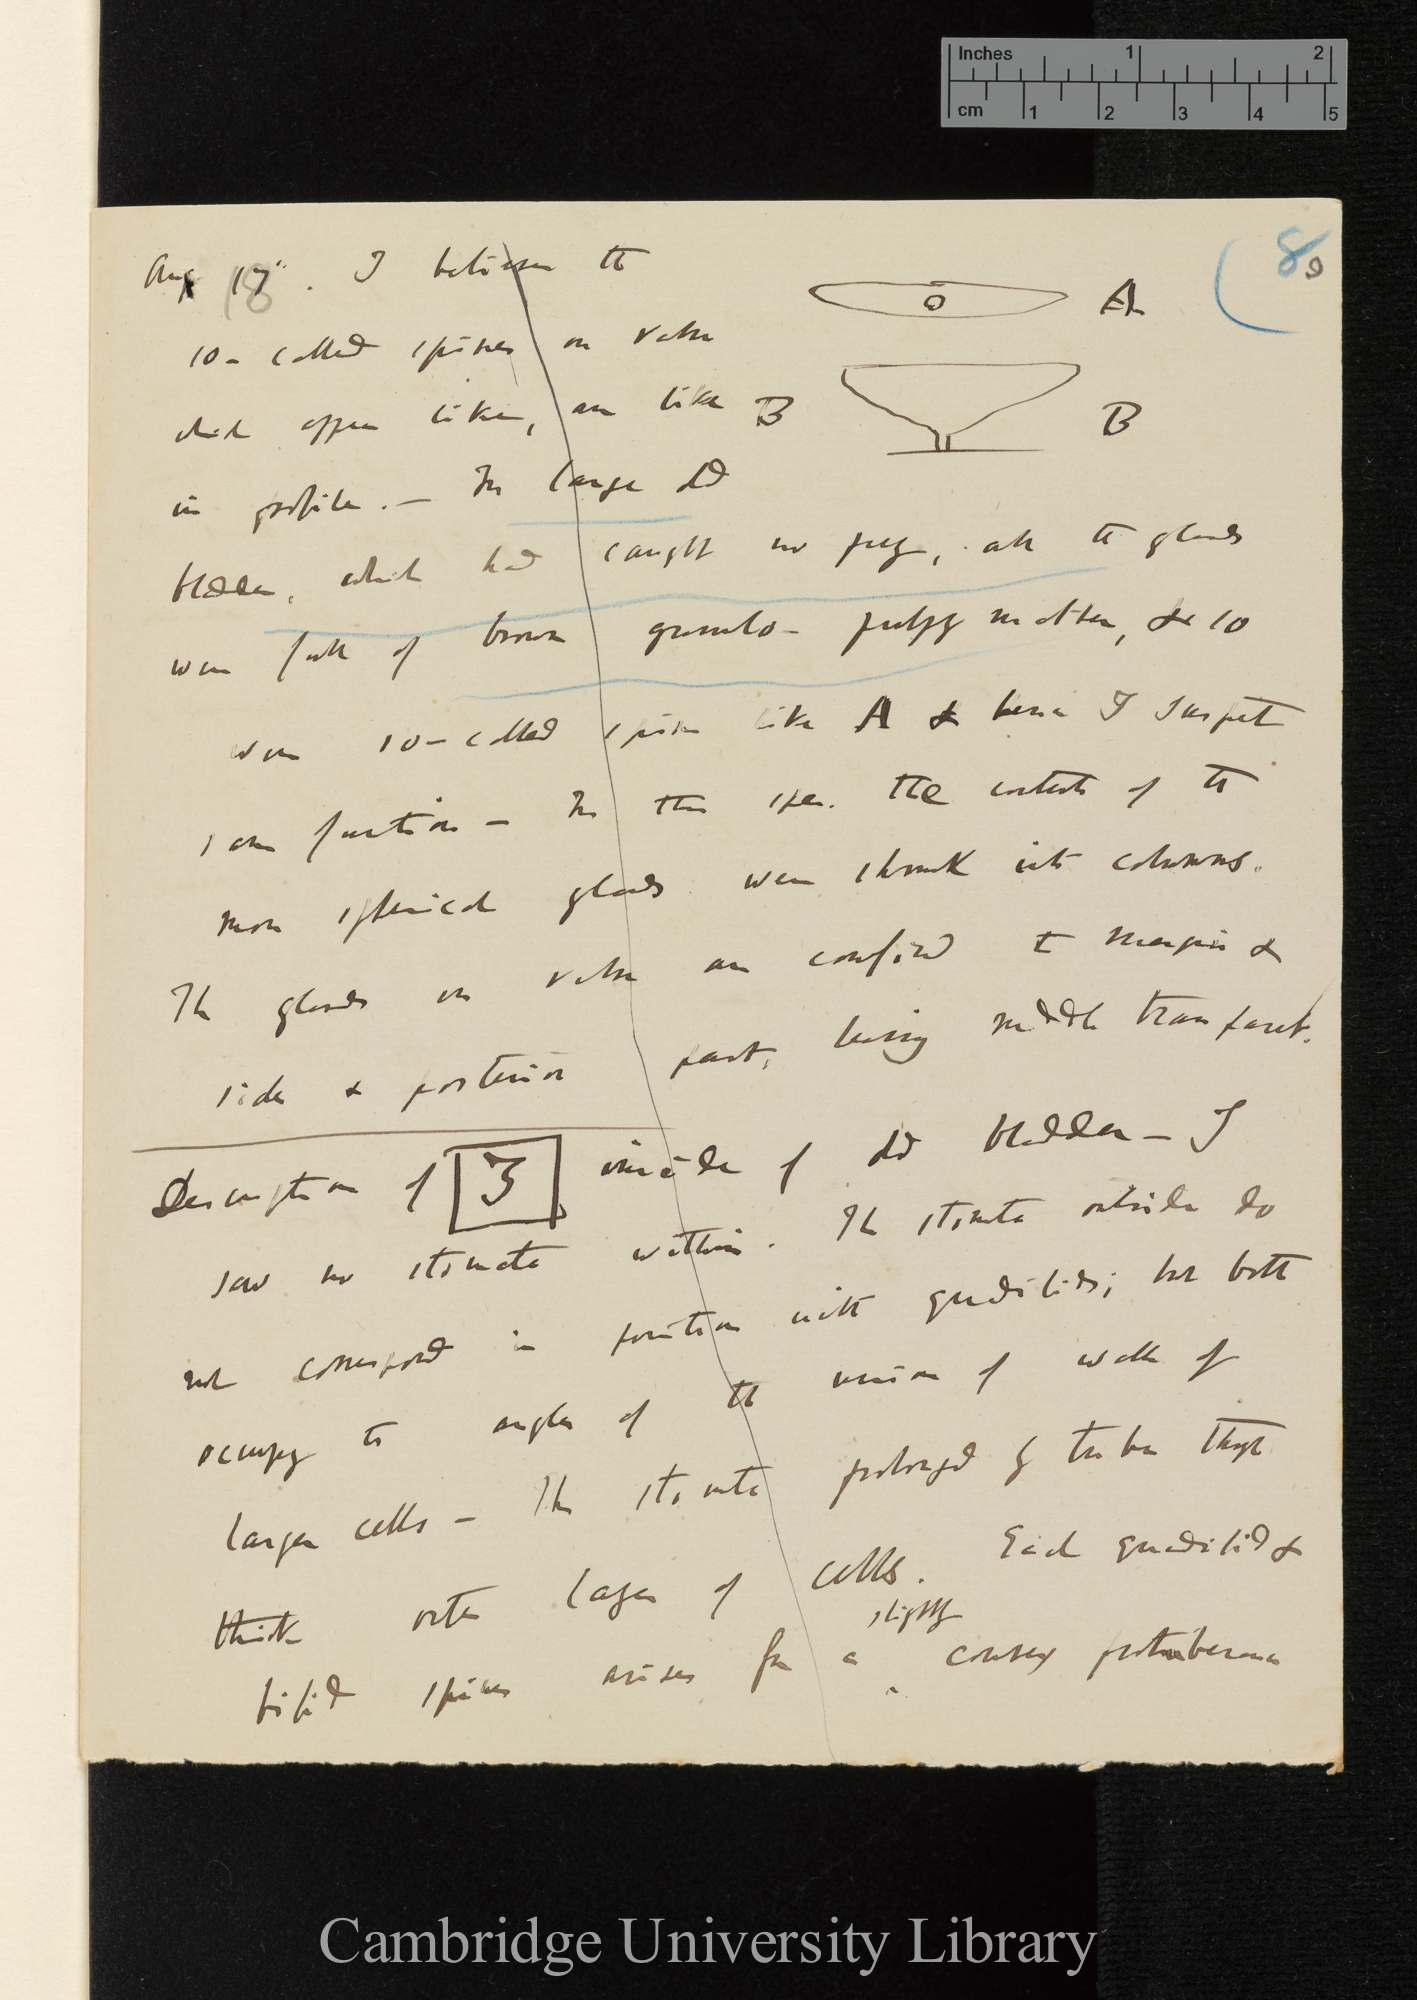 Inches 1 2
cm 1 2 3 4 5
8
Aug 17th. I believe the A
so-called spines on valve
which appear like, are like B B
in profile. — In large old
bladder, which had caught no prey, all the glands
were full of brown granulo-pulpy matter, & so
were so-called spines like A & hence I suspect
same function — In this spec. the contents of the
more spherical glands were shrunk into columns.
The glands on valve are confined to margin &
sides & posterior part, leaving middle transparent.
Description of 3 inside of old bladder — I
saw no stomata within. The stomata outside do
not correspond in position with quadrifids; but both
occupy the angles of the union of walls of
larger cells — The stomata prolonged by tube through
thick outer layer of cells. Each quadrifid &
slightly
bifid spines arises from a convex protuberance
Cambridge University Library